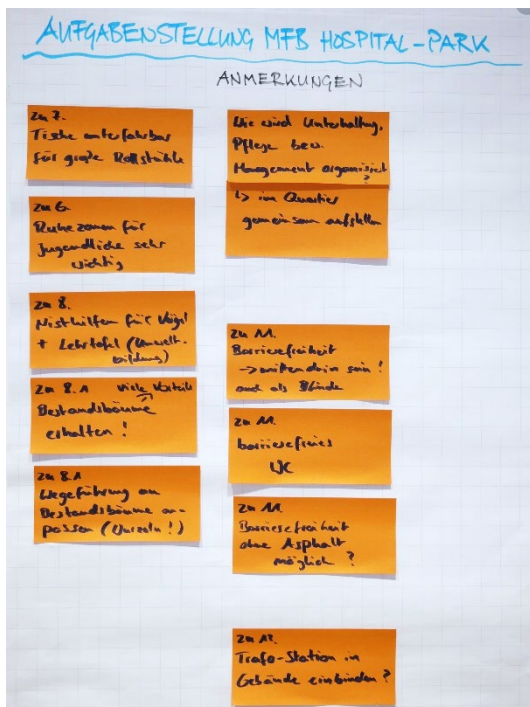 AUFGABENSTELLUNG MFB HOSPITAL-PARK
ANMERKUNGEN
zu 7.
Tische unterfahrbar
für große Rollstühle
zu 6.
Ruhezonen für
Jugendliche sehr
wichtig
zu 8.
Nisthilfen für Vögel
+ Lehrtafel (Umwelt-
bildung)
zu 8.1 viele Vorteile
Bestandsbäume
erhalten !
zu 8.1
Wegeführung an
Bestandsbäume an-
passen (Wurzeln !)
Wie wird Unterhaltung,
Pflege bzw.
Management organisiert
?
↳ im Quartier
gemeinsam aufstellen
zu 11.
Barrierefreiheit
→ mittendrin sein !
auch als Blinde
zu 11.
barrierefreies
WC
zu 11.
Barrierefreiheit
ohne Asphalt
möglich ?
zu 12.
Trafo-Station in
Gebäude einbinden ?